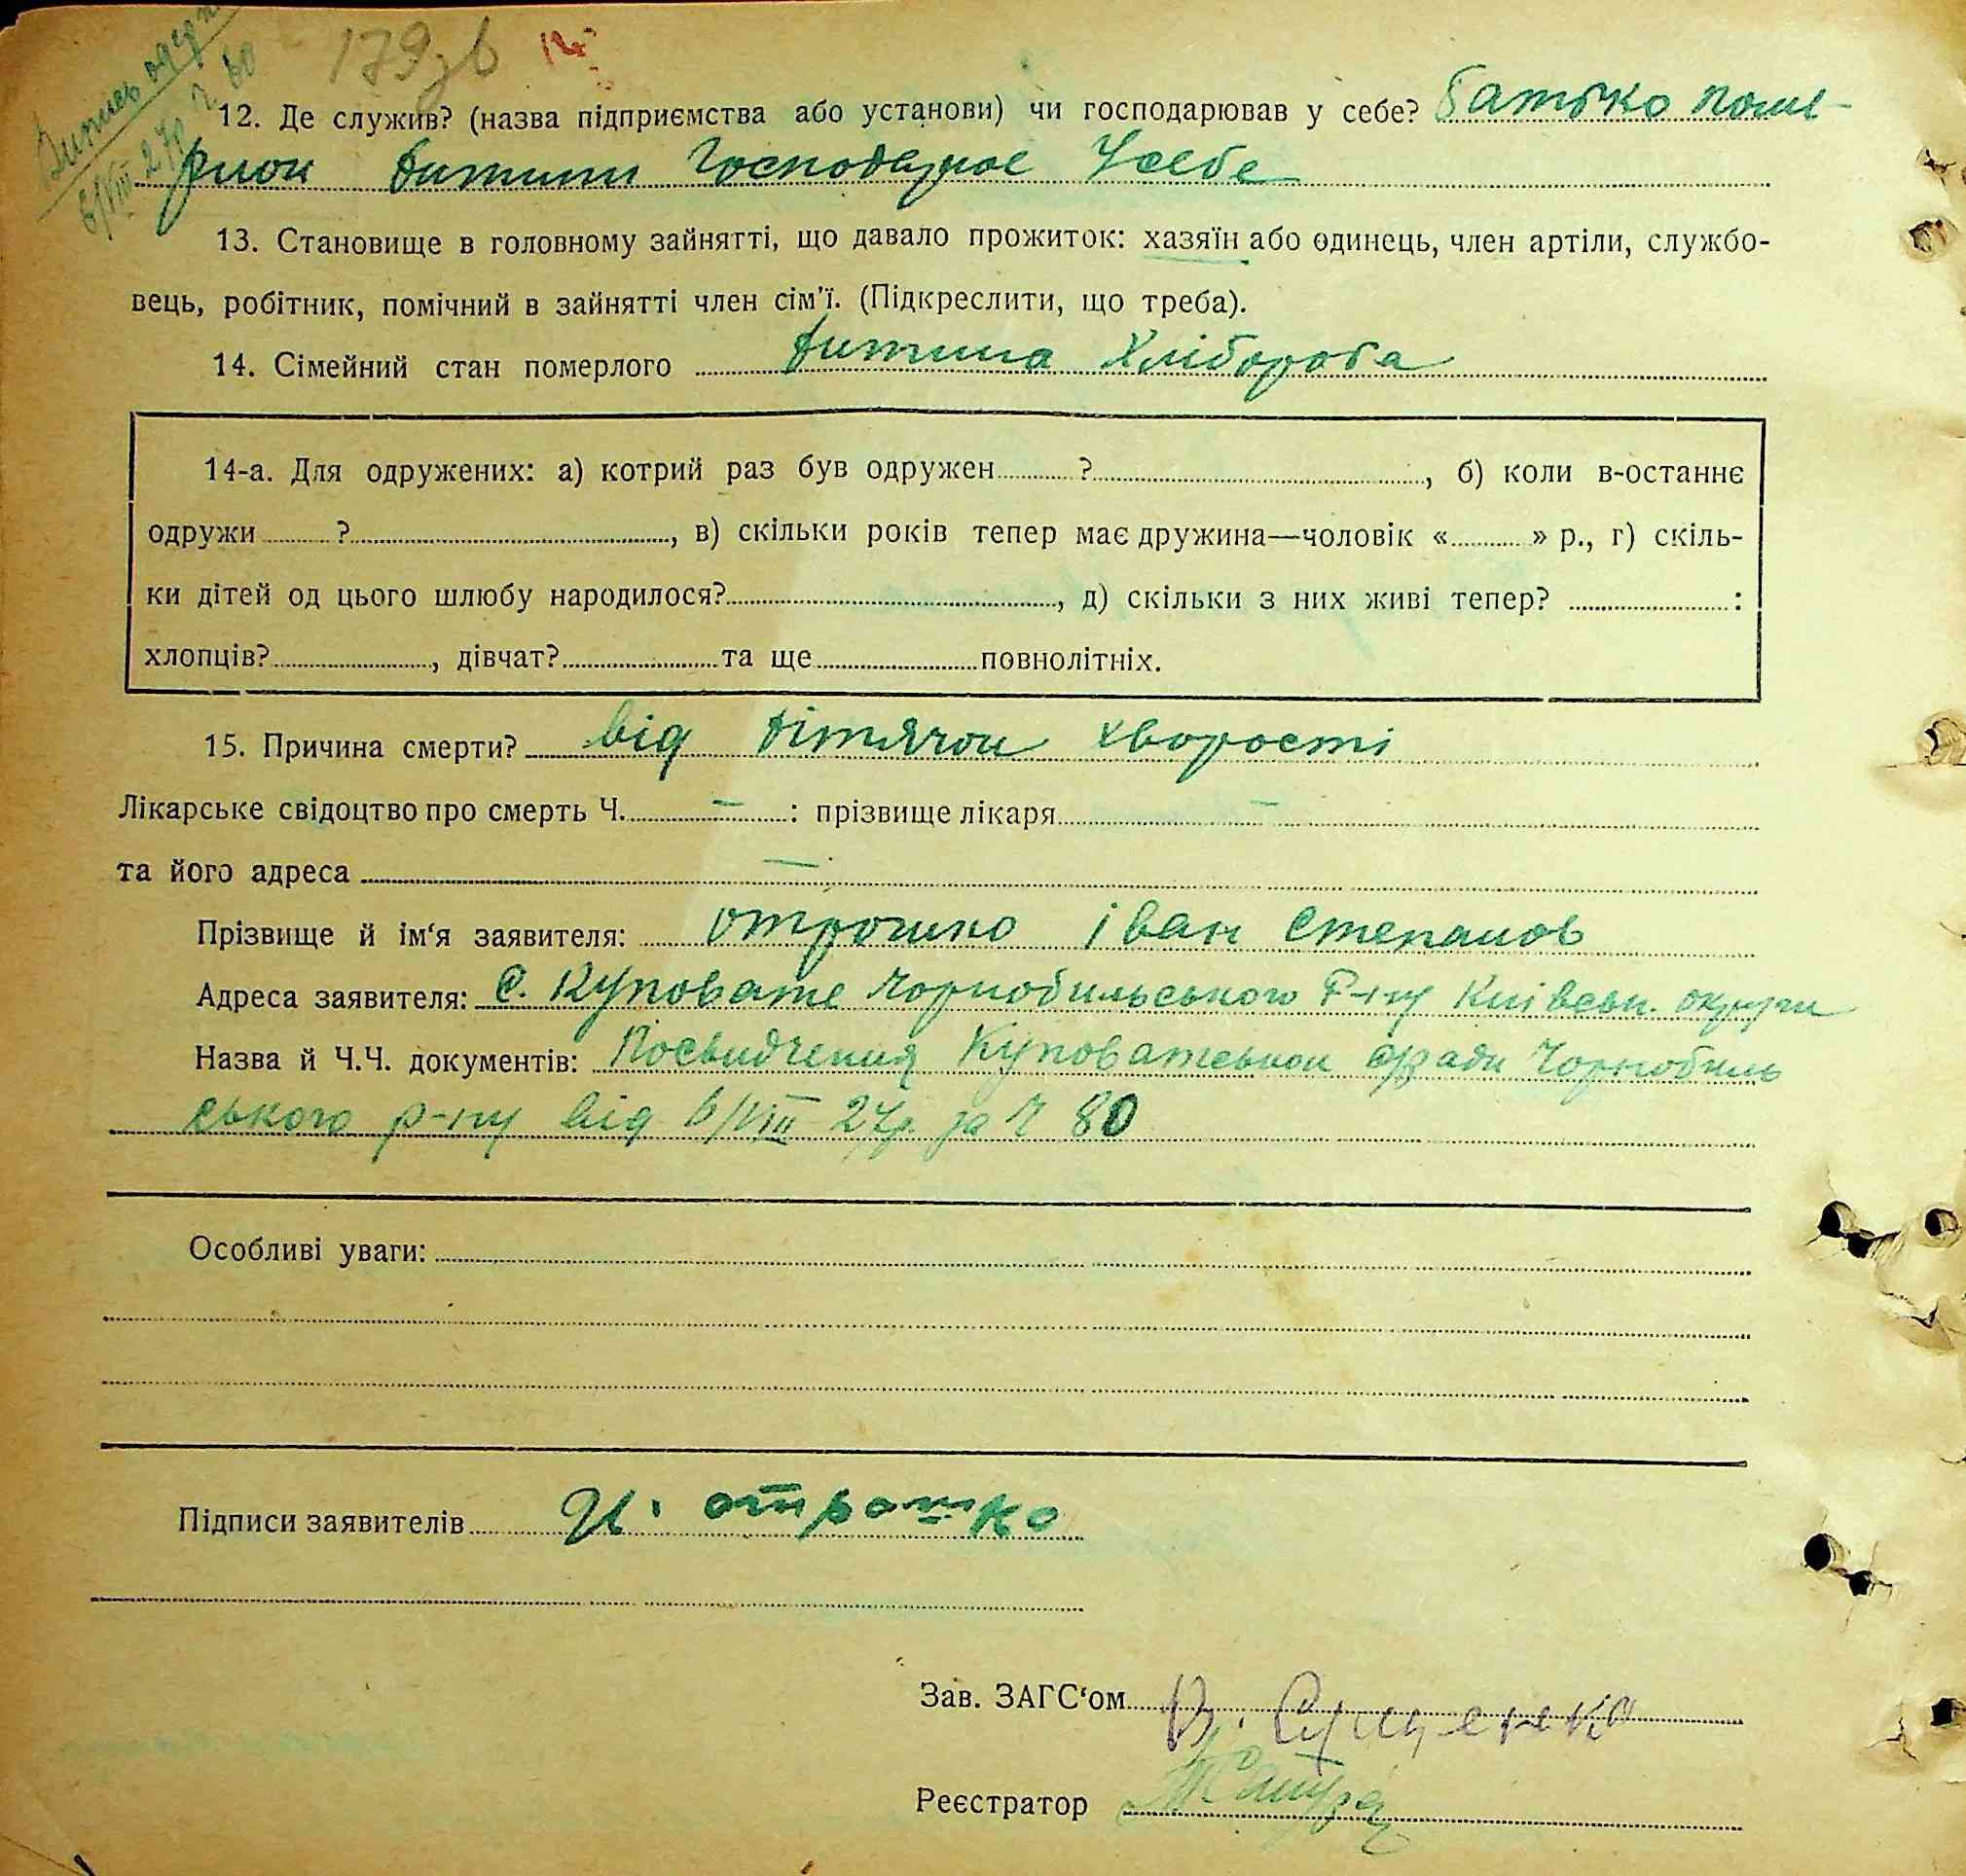 179зв
Витяг
6/VIII 27р. Ч. 80
12. Де служив? (назва підприємства або установи) чи господарював у себе? батько поме-
рлои дитини господарює Усебе
13. Становище в головному зайнятті, що давало прожиток: хазяїн або одинець, член артіли, службо-
вець, робітник, помічний в зайнятті член сім'ї. (Підкреслити, що треба).
14. Сімейний стан померлого дитина хлібороба
14-а. Для одружених: а) котрий раз був одружен ? , б) коли в-останнє
одружи ? , в) скільки років тепер має дружина—чоловік « » р., г) скіль-
ки дітей од цього шлюбу народилося? , д) скільки з них живі тепер? :
хлопців? , дівчат? та ще повнолітніх.
15. Причина смерти? від дітячои хворості
Лікарське свідоцтво про смерть Ч. – : прізвище лікаря –
та його адреса —
Прізвище й ім'я заявителя: отрошко іван степанов
Адреса заявителя: с. Куповате Чорнобильського Р-ну Київськ. округи
Назва й Ч.Ч. документів: Посвидчения Куповатськои с/ради Чорнобиль
ського р-ну від 6/VIII 27р. за Ч 80
Особливі уваги:
Підписи заявителів И. отрошко
Зав. ЗАГС'ом
Реєстратор